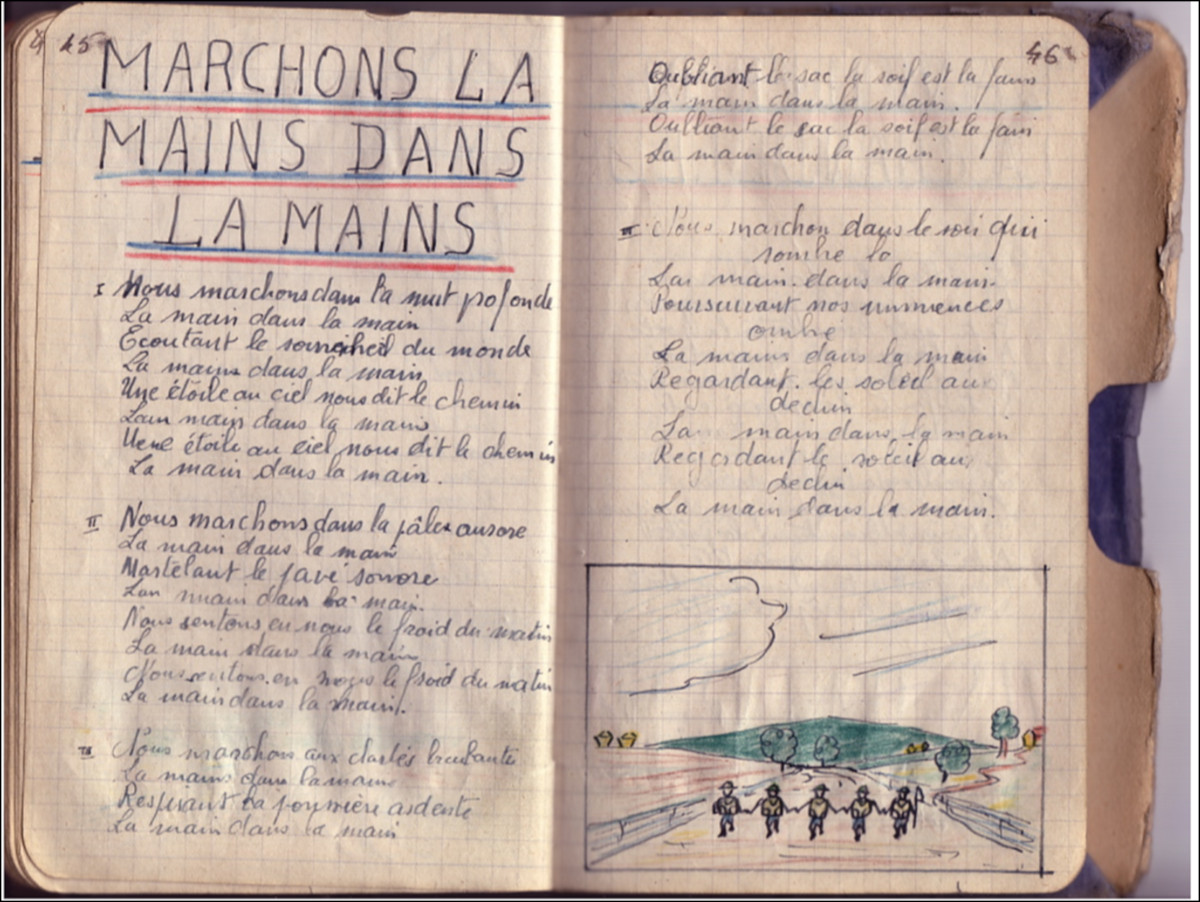 45
MARCHONS LA
MAINS DANS
LA MAINS
I Nous marchons dans la nuit pofonde
La main dans la main
Ecoutant le du monde
La mains dans la main
Une étoile au ciel nous dit le chemin
main dans la mains
étoile au ciel nous dit le chemin
La main dans la main.
II Nous marchons dans la pâles aurore
La main dans la main
Martelant le pavé sonore
main dans la main.
Nous sentons en nous le froid du matin
La main dans la main
Nous sentons en nous le froid du matin
La main dans la main.
III Nous marchons aux clartés
La mains dans la main
Respirant la ardente
La main dans la main
46
Oubliant le sac la soif est la faim
La main dans la main.
Oubliant le sac la soif est la faim
La main dans la main.
Nous marchon dans le soir qui
sombre
main dans la main
Poursuivant nos
ombre
La mains dans la main
Regardant les soleil au
declin
La main dans la main
Regardant le soleil au
declin
La main dans la main.